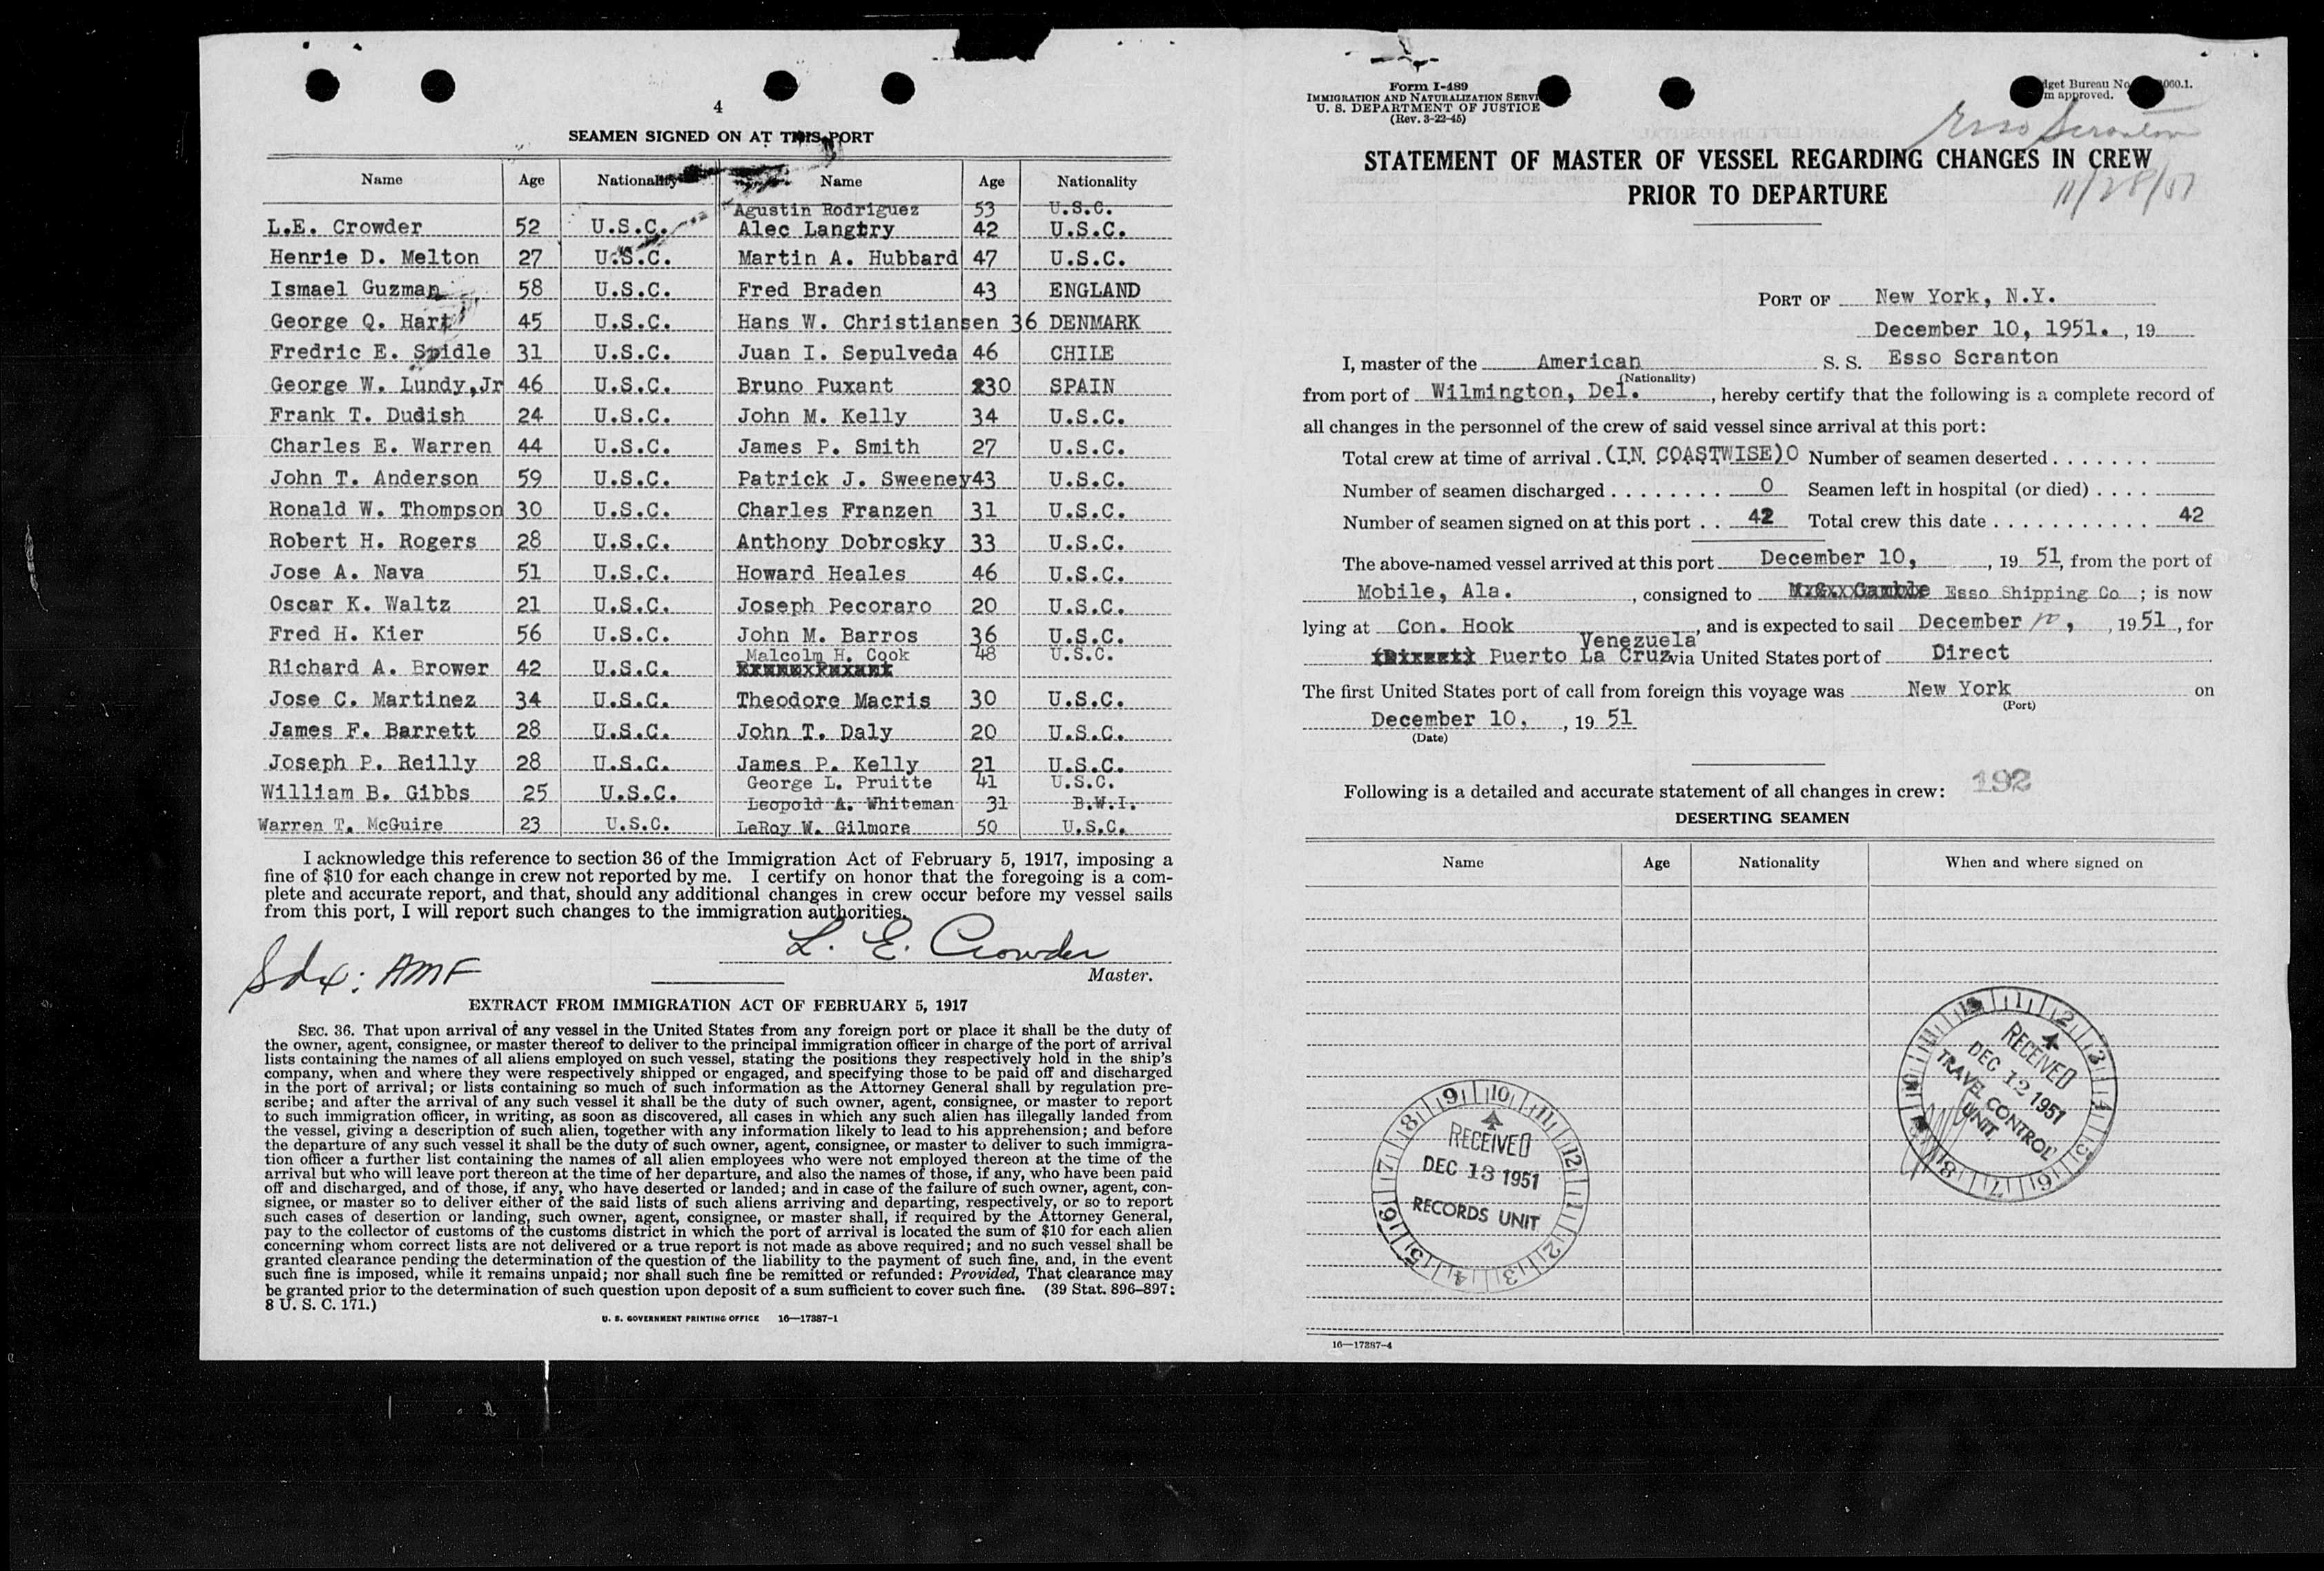 4
SEAMEN SIGNED ON AT THIS PORT
Name Age Nationality Name Age Nationality
Agustin Rodriguez 53 U.S.C.
L.E. Crowder 52 U.S.C. Alec Langtry 42 U.S.C.
Henrie D. Melton 27 U.S.C. Martin A. Hubbard 47 U.S.C.
Ismael Guzman 58 U.S.C. Fred Braden 43 ENGLAND
George Q. Hart 45 U.S.C. Hans W. Christiansen 36 DENMARK
Fredric E. Spidle 31 U.S.C. Juan I. Sepulveda 46 CHILE
George W. Lundy,Jr 46 U.S.C. Bruno Puxant 30 SPAIN
Frank T. Dudish 24 U.S.C. John M. Kelly 34 U.S.C.
Charles E. Warren 44 U.S.C. James P. Smith 27 U.S.C.
John T. Anderson 59 U.S.C. Patrick J. Sweeney 43 U.S.C.
Ronald W. Thompson 30 U.S.C. Charles Franzen 31 U.S.C.
Robert H. Rogers 28 U.S.C. Anthony Dobrosky 33 U.S.C.
Jose A. Nava 51 U.S.C. Howard Heales 46 U.S.C.
Oscar K. Waltz 21 U.S.C. Joseph Pecoraro 20 U.S.C.
Fred H. Kier 56 U.S.C. John M. Barros 36 U.S.C.
Malcolm H. Cook 48 U.S.C.
Richard A. Brower 42 U.S.C.
Jose C. Martinez 34 U.S.C. Theodore Macris 30 U.S.C.
James F. Barrett 28 U.S.C. John T. Daly 20 U.S.C.
Joseph P. Reilly 28 U.S.C. James P. Kelly 21 U.S.C.
George L. Pruitte 41 U.S.C.
William B. Gibbs 25 U.S.C. Leopold A. Whiteman 31 B.W.I.
Warren T. McGuire 23 U.S.C. LeRoy W. Gilmore 50 U.S.C.
I acknowledge this reference to section 36 of the Immigration Act of February 5, 1917, imposing a
fine of $10 for each change in crew not reported by me. I certify on honor that the foregoing is a com-
plete and accurate report, and that, should any additional changes in crew occur before my vessel sails
from this port, I will report such changes to the immigration authorities.
L. E. Crowder
Master.
AMF
EXTRACT FROM IMMIGRATION ACT OF FEBRUARY 5, 1917
SEC. 36. That upon arrival of any vessel in the United States from any foreign port or place it shall be the duty of
the owner, agent, consignee, or master thereof to deliver to the principal immigration officer in charge of the port of arrival
lists containing the names of all aliens employed on such vessel, stating the positions they respectively hold in the ship's
company, when and where they were respectively shipped or engaged, and specifying those to be paid off and discharged
in the port of arrival; or lists containing so much of such information as the Attorney General shall by regulation pre-
scribe; and after the arrival of any such vessel it shall be the duty of such owner, agent, consignee, or master to report
to such immigration officer, in writing, as soon as discovered, all cases in which any such alien has illegally landed from
the vessel, giving a description of such alien, together with any information likely to lead to his apprehension; and before
the departure of any such vessel it shall be the duty of such owner, agent, consignee, or master to deliver to such immigra-
tion officer a further list containing the names of all alien employees who were not employed thereon at the time of the
arrival but who will leave port thereon at the time of her departure, and also the names of those, if any, who have been paid
off and discharged, and of those, if any, who have deserted or landed; and in case of the failure of such owner, agent, con-
signee, or master so to deliver either of the said lists of such aliens arriving and departing, respectively, or so to report
such cases of desertion or landing, such owner, agent, consignee, or master shall, if required by the Attorney General,
pay to the collector of customs of the customs district in which the port of arrival is located the sum of $10 for each alien
concerning whom correct lists are not delivered or a true report is not made as above required; and no such vessel shall be
granted clearance pending the determination of the question of the liability to the payment of such fine, and, in the event
such fine is imposed, while it remains unpaid; nor shall such fine be remitted or refunded: Provided, That clearance may
be granted prior to the determination of such question upon deposit of a sum sufficient to cover such fine. (39 Stat. 896-897;
8 U. S. C. 171.)
U. S. GOVERNMENT PRINTING OFFICE 16—17387-1
Form I-489
IMMIGRATION AND NATURALIZATION SERVI
U. S. DEPARTMENT OF JUSTICE
(Rev. 3-22-45)
dget Bureau No. 060.1.
m approved.
Esso Scranton
STATEMENT OF MASTER OF VESSEL REGARDING CHANGES IN CREW
PRIOR TO DEPARTURE
11/28/51
PORT OF New York, N.Y.
December 10, 1951. , 19
I, master of the American S. S. Esso Scranton
(Nationality)
from port of Wilmington, Del. , hereby certify that the following is a complete record of
all changes in the personnel of the crew of said vessel since arrival at this port:
Total crew at time of arrival . (IN COASTWISE) 0 Number of seamen deserted . . . . . . .
Number of seamen discharged . . . . . . . . 0 Seamen left in hospital (or died) . . . .
Number of seamen signed on at this port . . 42 Total crew this date . . . . . . . . . . . 42
The above-named vessel arrived at this port December 10, , 19 51, from the port of
Mobile, Ala. , consigned to Esso Shipping Co ; is now
lying at Con. Hook , and is expected to sail December 10, , 19 51 , for
Venezuela
(Direct) Puerto La Cruz via United States port of Direct
The first United States port of call from foreign this voyage was New York on
(Port)
December 10, , 19 51
(Date)
Following is a detailed and accurate statement of all changes in crew: 192
DESERTING SEAMEN
Name Age Nationality When and where signed on
12 1 2 3 4 5 6 7 8 9 10 11
RECEIVED
DEC 12 1951
TRAVEL CONTROL
UNIT
9 10 11 12 1 2 3 4 5 6 7 8
RECEIVED
DEC 13 1951
RECORDS UNIT
16—17387-4